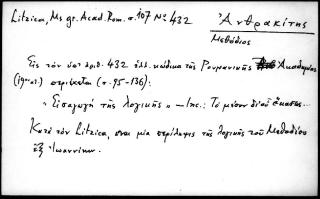 Litzica, Ms gr. Acad. Rom. σ. 107 Νο 432
Ἀνθρακίτης
Μεθόδιος
Εἰς τὸν ὑπ' ἀριθ. 432 ἑλλ. κώδικα τῆς Ρουμανικῆς Ἀκαδημίας
(19 αι.) περιέχεται (σ. 95-136):
"Εἰσαγωγὴ τῆς λογικῆς" — Inc.: Τὸ μέσον δι' οὗ ἕκαστος...
Κατὰ τὸν Litzica, εἶναι μία περίληψις τῆς λογικῆς τοῦ Μεθοδίου
ἐξ Ἰωαννίνων.